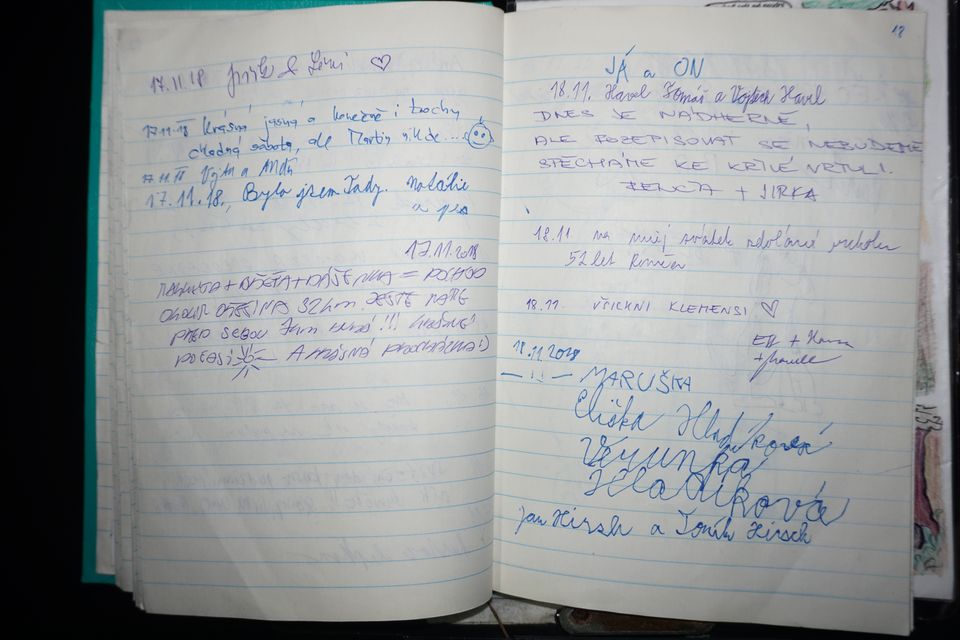 17.11.18
17.11.18 Krásná jasná a konečně i trochu
chladná sobota, ale Martin nikde...
17.11.18 a
17.11.18., Byla jsem Tady. Natálie
a pes
17.11.2018
= POCHOD
32km JEŠTĚ MÁME
PŘED SEBOU 7km !!! KRÁSNÉ
POČASÍ A KRÁSNÁ PROCHÁZKA :)
18
JÁ a ON
18.11. Havel Tomáš a Vojtěch Havel
DNES JE NÁDHERNĚ,
ALE ROZEPISOVAT SE NEBUDEME
SPĚCHÁME KE KŘIVÉ VRTULI.
+ JIRKA
18.11 na můj svátek zdolání vrcholu
52 let Roman
18.11. VŠICHNI KLEMENSI
+
18.11.2018
— !! — MARUŠKA
Eliška Hladíková
Verunka
Hladíková
Jan Hirsch a Toník Hirsch